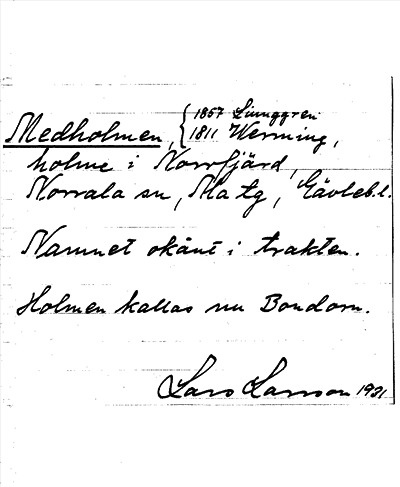 Medholmen, { 1857 Ljunggren
1811 Werming,
holme i Norrfjärd,
Norrala sn, Ala tg, Gävleb.l.
Namnet okänt i trakten.
Holmen kallas nu Bondorn.
Lars Larsson 1931